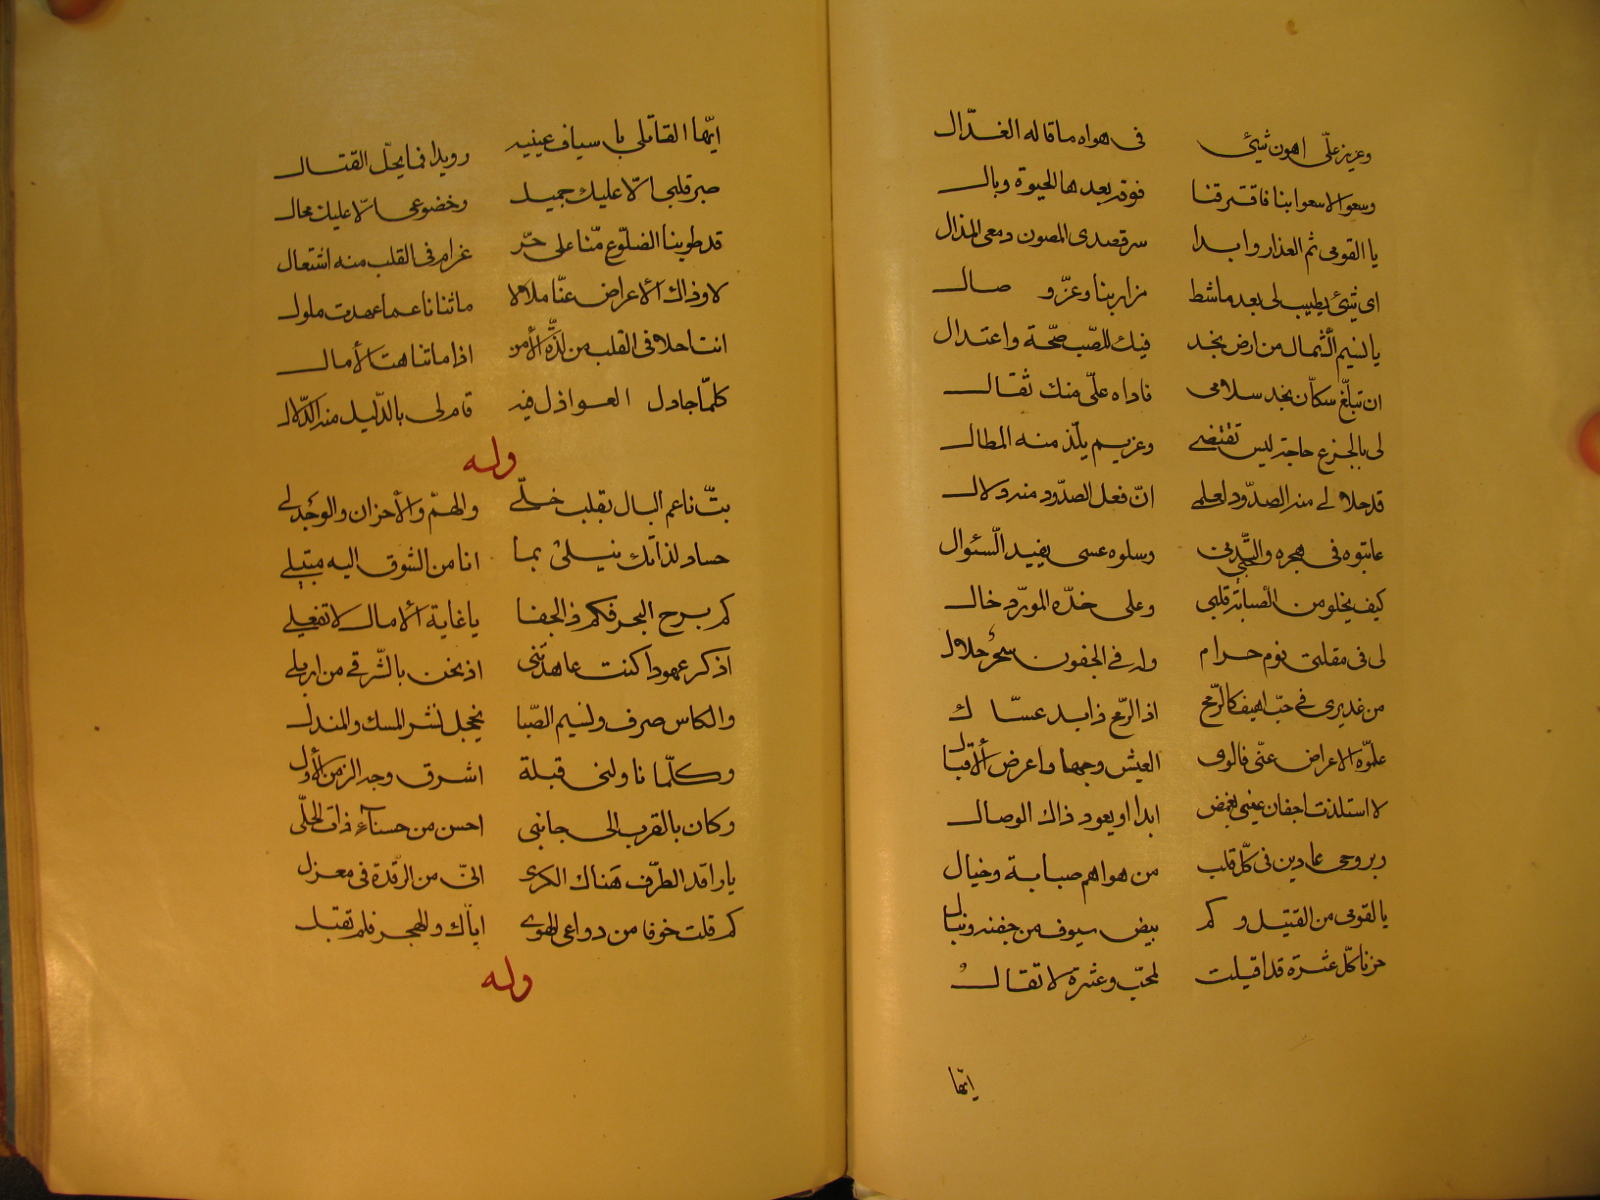 وعزيز علّى اهون شئ في هواه ما قاله الغدّال
وسعوا لاسعوا بنا فاقترقنا فوقر بعدها الحيوة وبال
يا القومى ثم العذار وابدا سر قصدى المصون دمعى المذال
اى شئ يطيب لى بعد ما شط مزار بنا وعزّ وصال
يا لنيم الشمال من ارض نجد فيك للصّب صحّة واعتدال
ان تبلّغ سكّان نجد سلامى فاداه علّى منك ثقال
لى بالجزع حاجة ليس تقتضى وعزيم يلّذ منه المطال
قد حلا لى منه الصدّود لعلمى انّ فعل الصدّود منه دلال
عاتبوه فى هجره والتجّنى وسلوه عسى يفيد السّئوال
كيف يخلو من الصبابة قلبى وعلى خدّه المورّد خال
لى فى مقلتى نوم حرام وار فى الجفون سحر حلال
من غديرى فى حبّ اهيف كالرّمح اذ الرّمح ذابد عسّاك
علمّوه الاعراض عنّى فالوى العيش وجها واعرض الاقبال
لا استلذت اجفان عينى بغمض ابدا او يعود ذاك الوصال
وبروحى عادين فى كلّ قلب من هواهم صبابة وخيال
يا لقومى من القتيل وكم بيض سيوف من جفنه ونبال
حزنا كلّ عثرة قد اقيلت لمحبّ وعثرة لا تقال
ايّها
ايّها القاتلى باسياف عينيه رويدا فما يحلّ القتال
صبر قلبى الّا عليك جميل وخضوعى الّا عليك محال
قد طوينا الضلّوع منّا على حّر غرام فى القلب منه اشتعال
لا وذاك الاعراض عنّا ملالا ما ثنانا عما عهدت ملول
انت احلا فى القلب من لذّه الامن اذا ما تناهت الأمال
كلمّا جادل العواذل فيه قام لى بالدّليل منه الدّلال
وله
بتّ ناعم البال بقلب خلّى والهمّ والأحزان والوجد لى
حساد لذاتك نيلى بما انا من الشوق اليه مبتلى
كم برح الهجر فكم ذا الجفا يا غاية الأمال لا تفعلى
اذكر عهودا كنت عاهدتنى اذ نحن بالشّرقى من اربلى
والكاس صرف ونسيم الصّبا يخجل نشر المسك والمندل
وكلّما ناولنى قبلة اشرق وجه الزمن الأول
وكان بالقرب الى جانبى احسن من حسنآء ذات الحلّى
يا راقد الطّرف هناك الكرى انّى من الرّقدة فى معزل
كم قلت خوفا من دواعى الهوى ايّاك والهجر فلم تقبل
وله